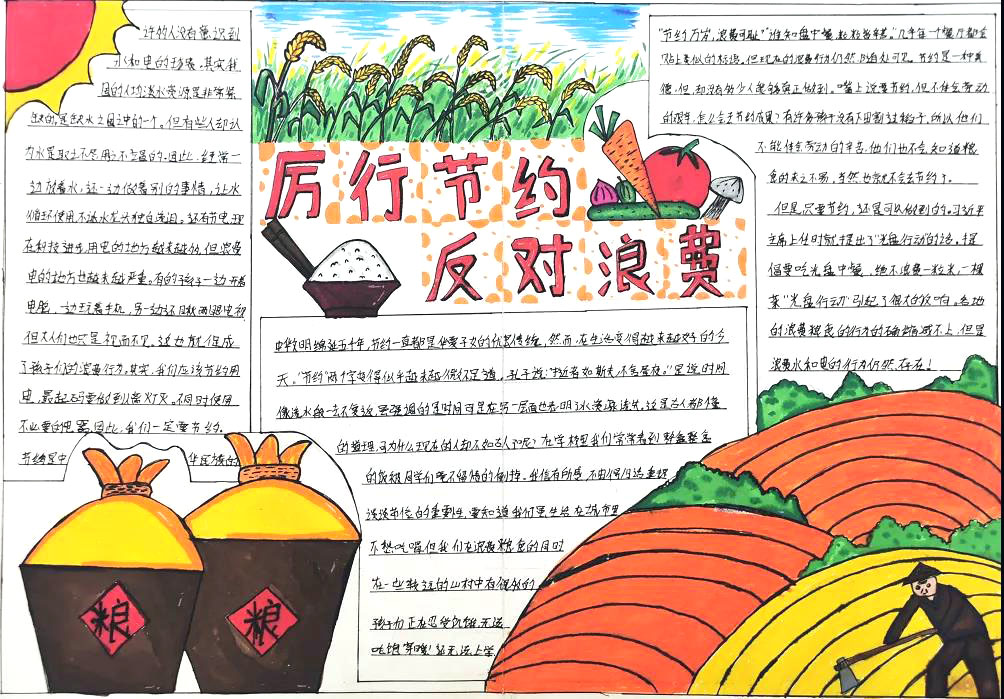 厉行节约
反对浪费
许多的人没有意识到
水和电的珍惜,其实我
国的人均淡水资源是非常紧
缺的,是缺水之国之中的一个。但有些人却认
为水是取之不尽用之不竭的。因此,经常一
边放着水,还一边做着别的事情,让水
循环使用,不让水龙头独自流泪。还有节电,现
在科技进步,用电的地方越来越多,但浪费
电的地方也越来越严重。有的孩子一边开着
电脑,一边玩着手机,另一边还
但大人们也只是视而不见。这也就促成
了孩子们的浪费行为。其实,我们应该节约用
电,最起码要做到人离灯灭。不同时使用
不必要的电器。因此,我们一定要节约。
节约是中华民族的
粮
粮
中华文明绵延五千年,节约一直都是华夏子女的优良传统,然而,在生活变得越来越好的今
天。"节约"两个字变得似乎越来越微不足道,孔子说:"逝者如斯夫,不舍昼夜。"是说时间
像流水般一去不复返,要强调的是时间可是在另一层面也表明了水资源流失。这是古人都懂
的道理,可为什么现在的人却不如古人了呢?在学校里我们常常看到整盘整盘
的饭被同学们毫不留情的倒掉。我倍有所感,不由得应该重视
谈谈节俭的重要性,要知道我们是生活在城市里
不愁吃喝但我们在浪费粮食的同时
在一些较远的山村中有很多的
孩子们正在忍受饥饿,无法
吃饱穿暖!甚至无法上学
"节约万岁,浪费可耻""谁知盘中餐,粒粒皆辛苦。"几乎每一个餐厅都会
贴上类似的标语。但现在的浪费行为仍然随处可见。节约是一种美
德,但,却没有多少人能够真正做到。嘴上说要节约,但不体会劳动
的艰辛,怎么会去节约反复?有许多孩子没有下田割过稻子,所以他们
不能体会劳动的辛苦,他们也不会知道粮
食的来之不易,当然也就不会去节约了。
但是,只要节约,还是可以做到的。习近平
主席上任时就提出了"光盘行动"的话。提
倡要吃光盘中餐,绝不浪费一粒米,一棵
菜"光盘行动"引起了很大的反响。各地
的浪费粮食的行为的确锐减不少,但是
浪费水和电的行为仍然存在!